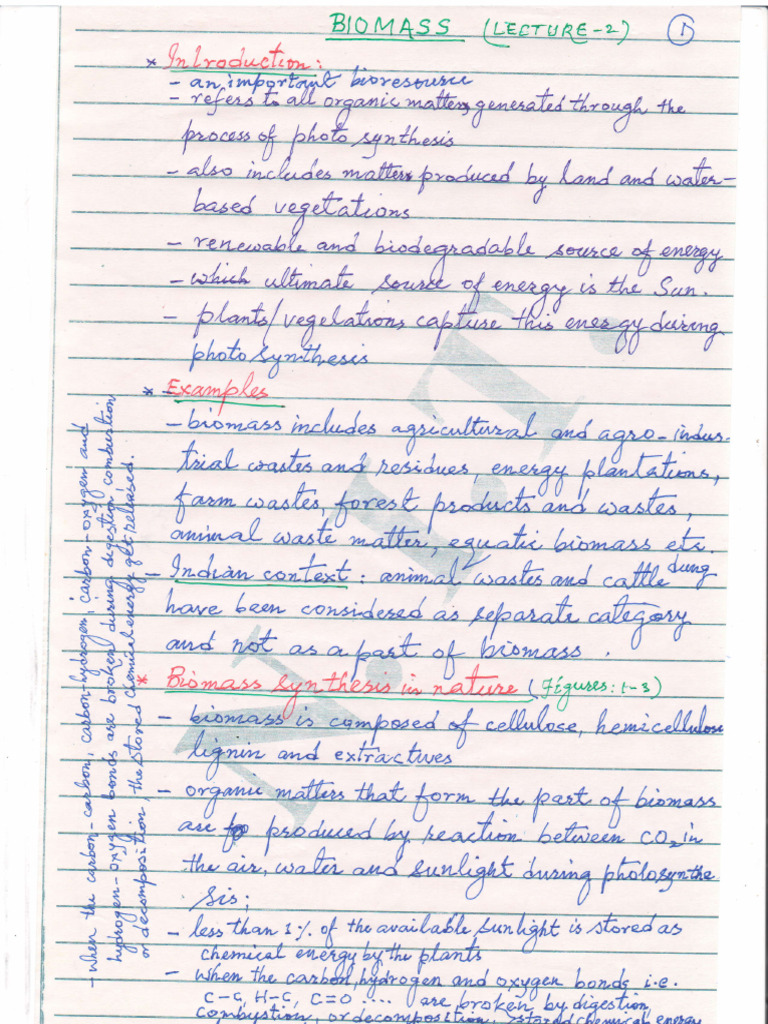 BIOMASS (LECTURE-2) 1
* Introduction:
- an important bioresource
- refers to all organic matters generated through the
process of photo synthesis
- also includes matters produced by land and water-
based vegetations
- renewable and biodegradable source of energy
- which ultimate source of energy is the Sun.
- plants/vegetations capture this energy during
photosynthesis
* Examples
- biomass includes agricultural and agro-indus-
trial wastes and residues, energy plantations,
farm wastes, forest products and wastes,
animal waste matter, equatic biomass etc.
- Indian context: animal wastes and cattle dung
have been considered as separate category
and not as a part of biomass.
* Biomass synthesis in nature (Figures: 1-3)
- biomass is composed of cellulose, hemicellulose
lignin and extractives
- organic matters that form the part of biomass
are produced by reaction between CO2 in
the air, water and sunlight during photosynthe
sis;
- less than 1% of the available sunlight is stored as
chemical energy by the plants
- when the carbon, hydrogen and oxygen bonds i.e.
C-C, H-C, C=O .... are broken by digestion,
combustion, or decomposition, stored chemical energy
- when the carbon-carbon, carbon-hydrogen, carbon-oxygen and
hydrogen-oxygen bonds are broken during digestion combustion
or decomposition, the stored chemical energy get released.
N.I.T.